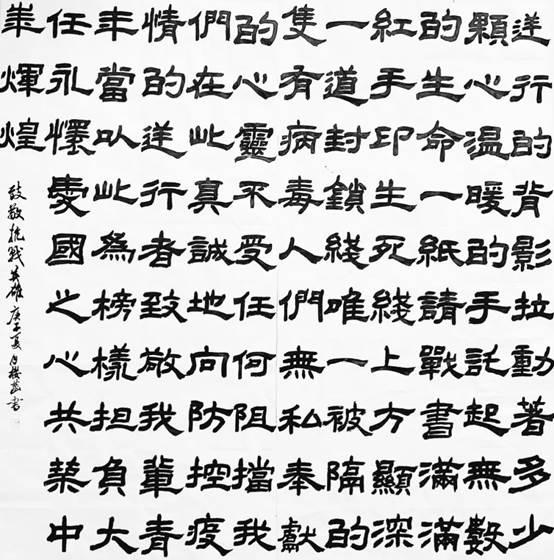 逆行的背影拉動著多少
顆心溫暖的手託起無數
的生命一紙請戰書滿滿
紅手印生死綫上方顯深
一道封鎖綫唯一被隔的
隻有病毒人們無私奉獻
的心靈不受任何阻擋我
們在此真誠地向防控疫
情的逆行者致敬我輩青
年當以此為榜樣担負大
任永懷愛國之心共築中
華輝煌
致敬抗戰英雄 庚子夏 書